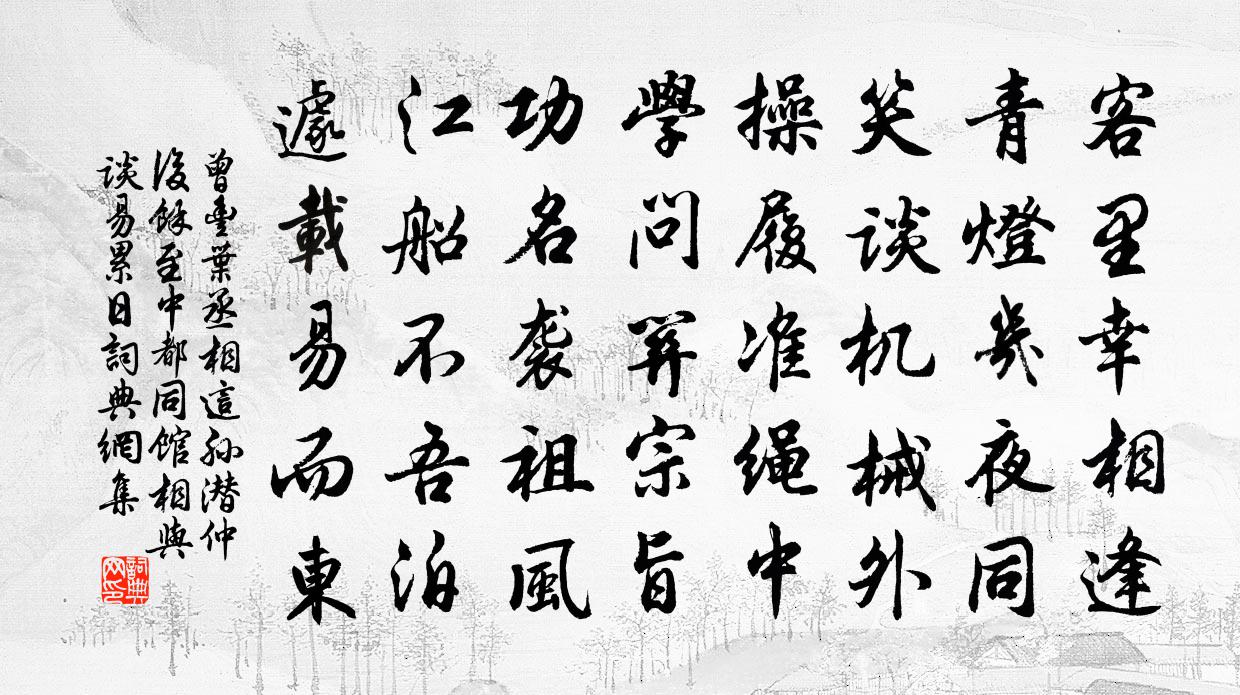 客里幸相逢
青燈幾夜同
笑谈机械外
操履准绳中
學問開宗旨
功名袭祖風
江船不吾泊
遽載易而東
曾豊葉丞相這孙潜仲
後餘至中都同馆相與
谈易累日詞典網集
詞典网印